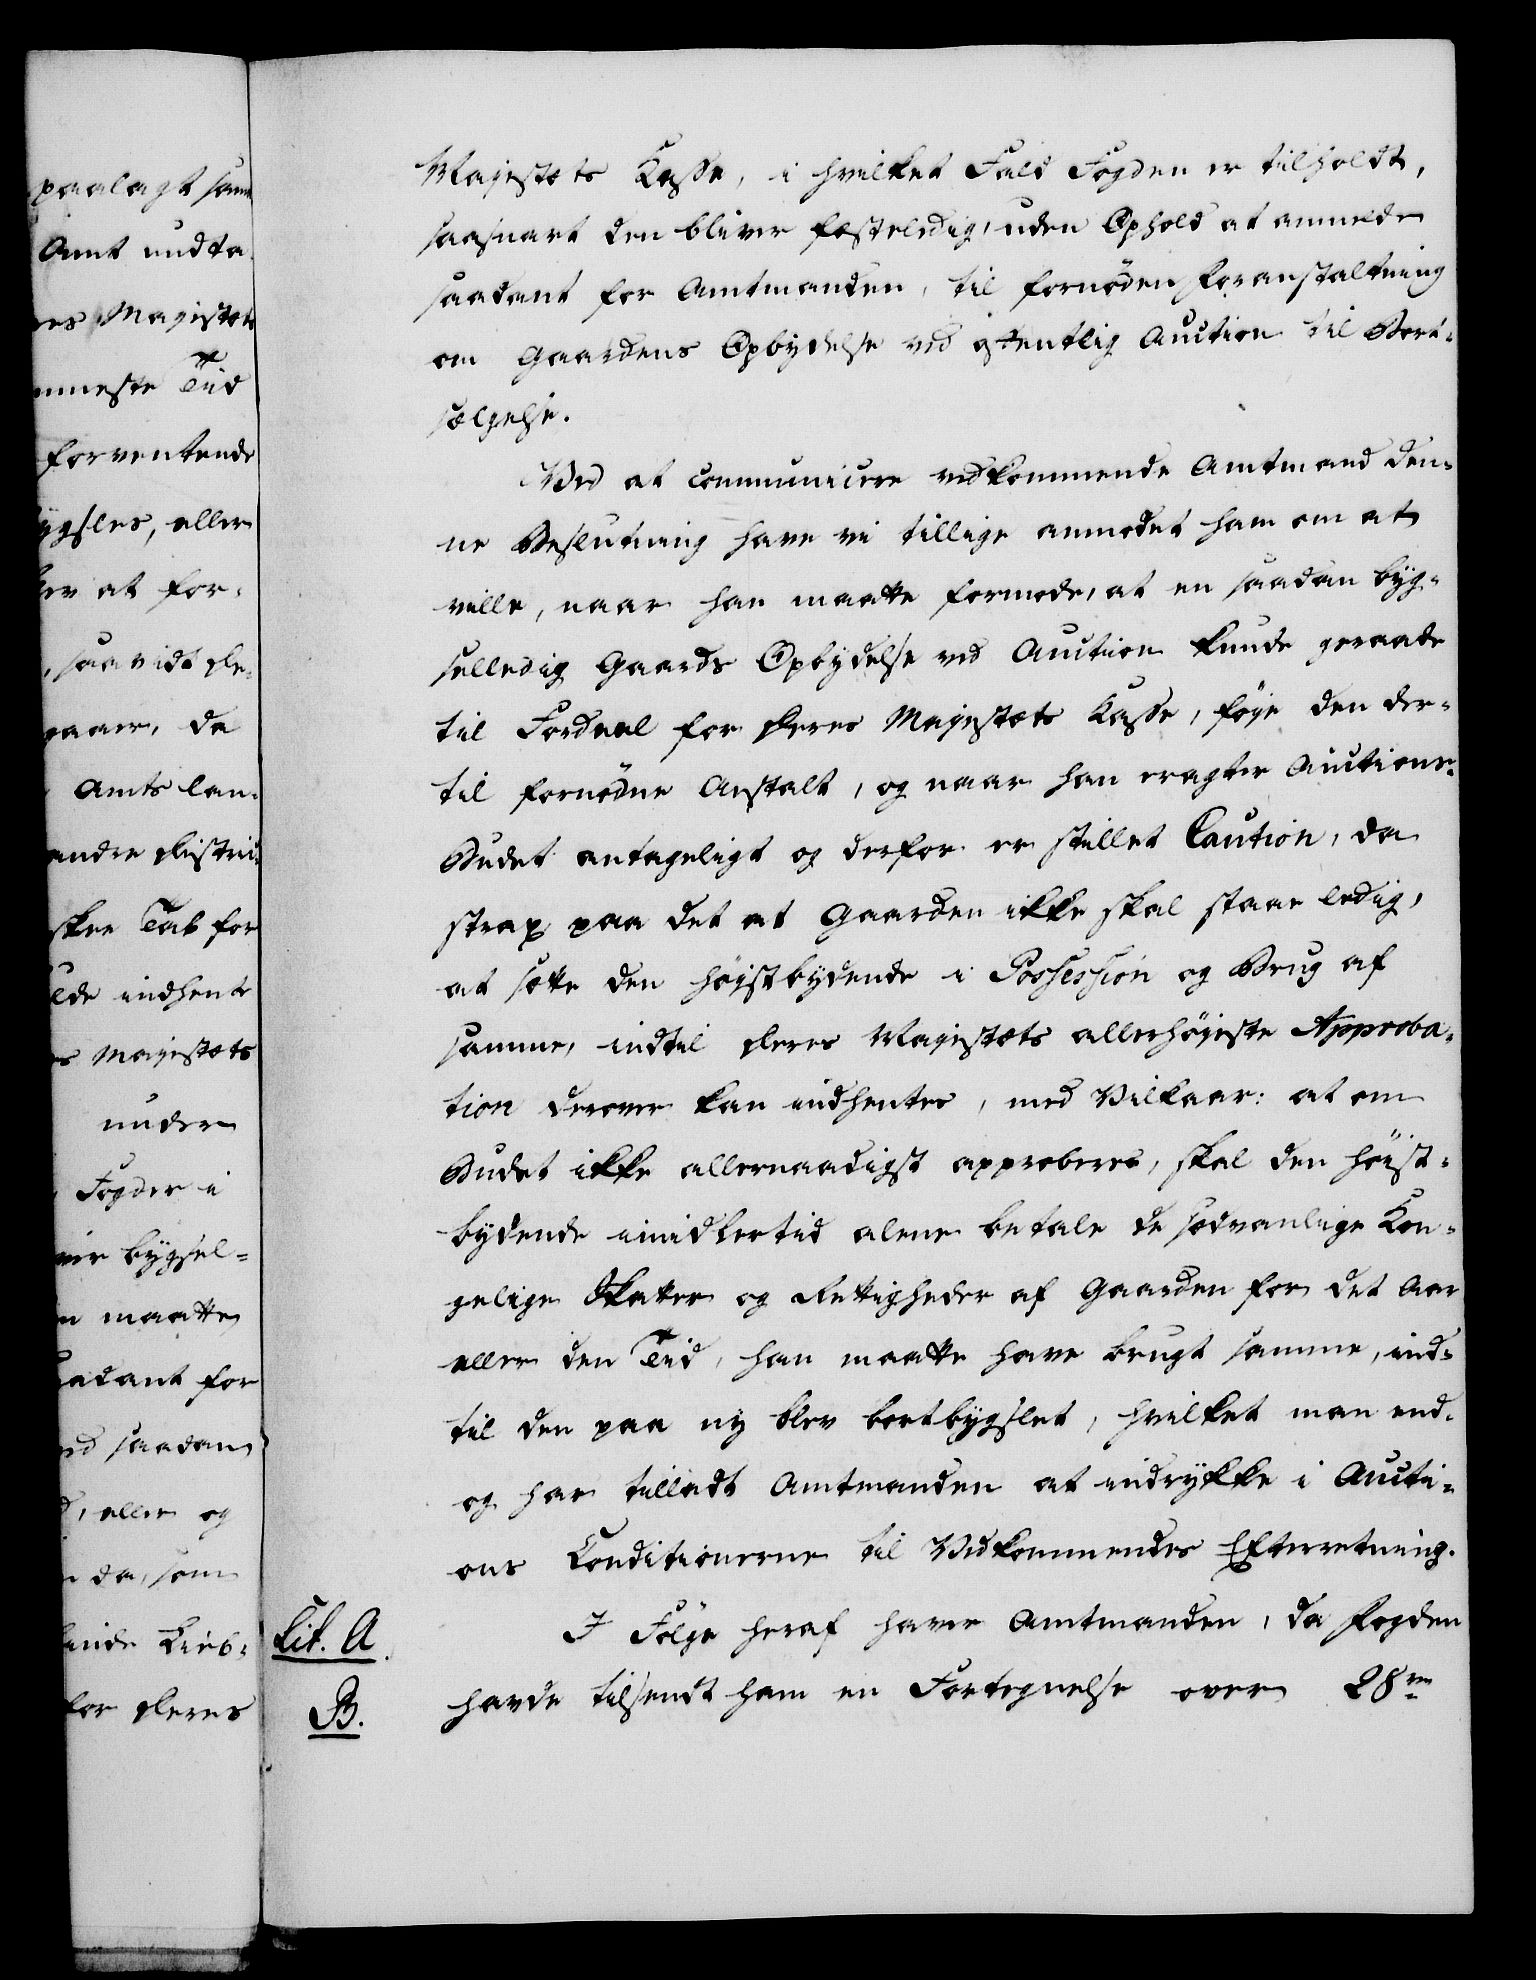 paalagt sam
Amt undta
res Majestæts
nmeste Tiid
forventende
ygsles, eller
at for-
, saavidt De-
gaaer, da
Amts lan-
andre Distri-
skee Tab for
indhente
s Majestæts
under
Fogder i
bÿgsel-
n maatte
aadant for
saadan
, eller og
da, som
for Deres
Majestæts Kasse, i hvilket Fald Fogden er tilholdt,
saasnart den bliver fæsteledig, uden Ophold at anmelde
saadant for Amtmanden, til fornöden Foranstaltning
om Gaardens Opbydelse ved offentlig Auction til Bort-
sælgelse.
Ved at communicere vedkommende Amtmand den-
ne Beslutning have vi tillige anmodet ham om at
ville, naar han maatte formode, at en saadan byg-
selledig Gaards Opbydelse ved Auction kunde geraade
til Fordeel for Deres Majestæts Kasse, föje den der-
til fornödne Anstalt, og naar han eragter Auctions-
Budet antageligt og derfor er stillet Caution, da
strax paa det at Gaarden ikke skal staae ledig,
at sætte den höjstbydende i Possession og Brug af
samme, indtil Deres Majestæts allerhöjeste Approba-
tion derover kan indhentes, med Vilkaar: at om
Budet ikke allernaadigst approberes, skal den höist-
bydende imidlertid alene betale de sædvanlige Kon-
gelige Skatter og Rettigheder af Gaarden for det Aar
eller den Tiid, han maatte have brugt samme, ind-
til den paa ny blev bortbygslet, hvilket man end-
og har tilladt Amtmanden at indrykke i Aucti-
ons Conditionerne til Vedkommendes Efterretning.
Lit. A.
I Fölge heraf haver Amtmanden, da Fogden
B.
havde tilsendt ham en Fortegnelse over 28ve